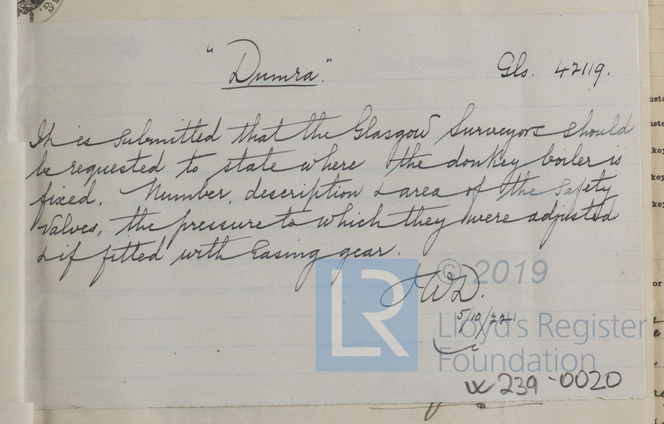 "Dumra." Gls. 42119.
It is submitted that the Glasgow Surveyors should
be requested to state where the donkey boiler is
fixed. Number, description & area of the Safety
Valves, the pressure to which they were adjusted
& if fitted with Easing gear.
JWD.
5/10/22
LR © 2019
Lloyd's Register
Foundation
W239-0020